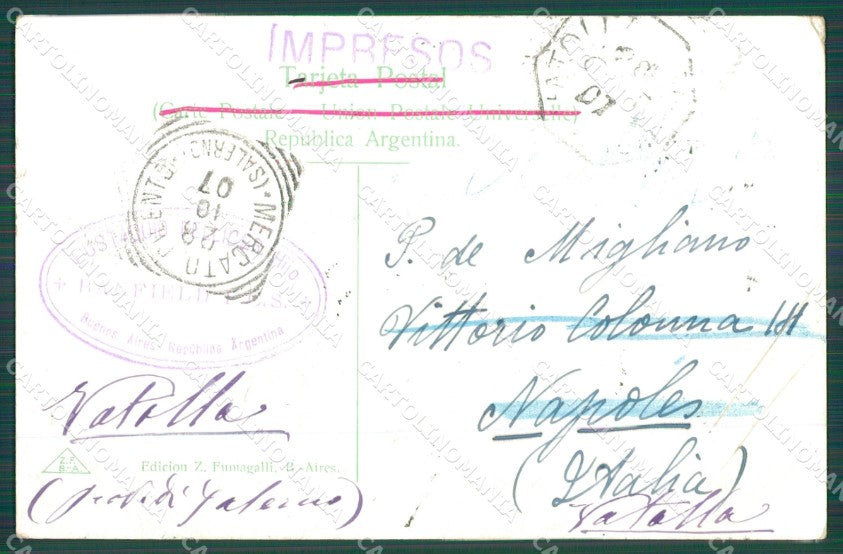 IMPRESOS
Tarjeta Postal
(Carte Postale - Union Postale Universelle)
República Argentina.
MERCATO CILENTO (SALERNO)
28
10
07
07
Buenos Aires República Argentina
P. de Migliano
Vittorio Colonna 14
Napoles
(Italia)
Vatolla
Vatolla
Z.F.
B-A
Edicion Z. Fumagalli, B-Aires.
(prov. di Salerno)
CARTOLINOMANIA